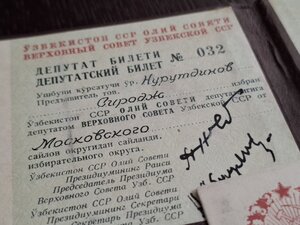 ЎЗБЕКИСТОН ССР ОЛИЙ СОВЕТИ
ВЕРХОВНЫЙ СОВЕТ УЗБЕКСКОЙ ССР
ДЕПУТАТ БИЛЕТИ
ДЕПУТАТСКИЙ БИЛЕТ № 032
Ушбуни кўрсатувчи ўр. Нурутдинов
Предъявитель тов.
Сиродж избран
Ўзбекистон ССР ОЛИЙ СОВЕТИ депутатлигига
депутатом ВЕРХОВНОГО СОВЕТА Узбекской ССР от
Московского
сайлов округидан сайланди.
избирательного округа.
Ўзбекистон ССР Олий Совети
Президиумининг Раиси
Председатель Президиума
Верховного Совета Узб. ССР
Ўзбекистон ССР Олий Совети
Президиумининг Секретари
Секретарь Президиума